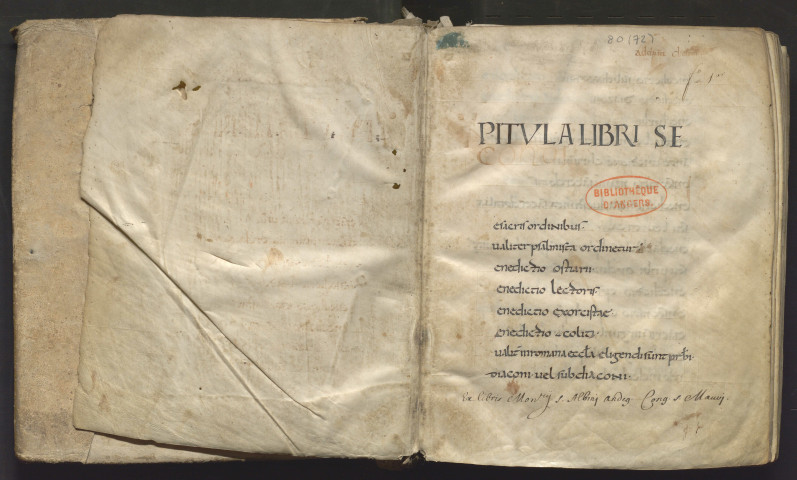 80 (72)
PITVLA LIBRI SE
BIBLIOTHÈQUE
D'ANGERS.
e sacris ordinibus
ualiter psalmista ordinetur
enedictio ostiarii
enedictio lectoris
enedictio exorcistae
enedictio acoliti
ualit in romana eccla eligendi sunt prbi
diaconi uel subdiaconi
Ex Libris Mon.rij s. Albini andeg. Cong. s. Mauri.